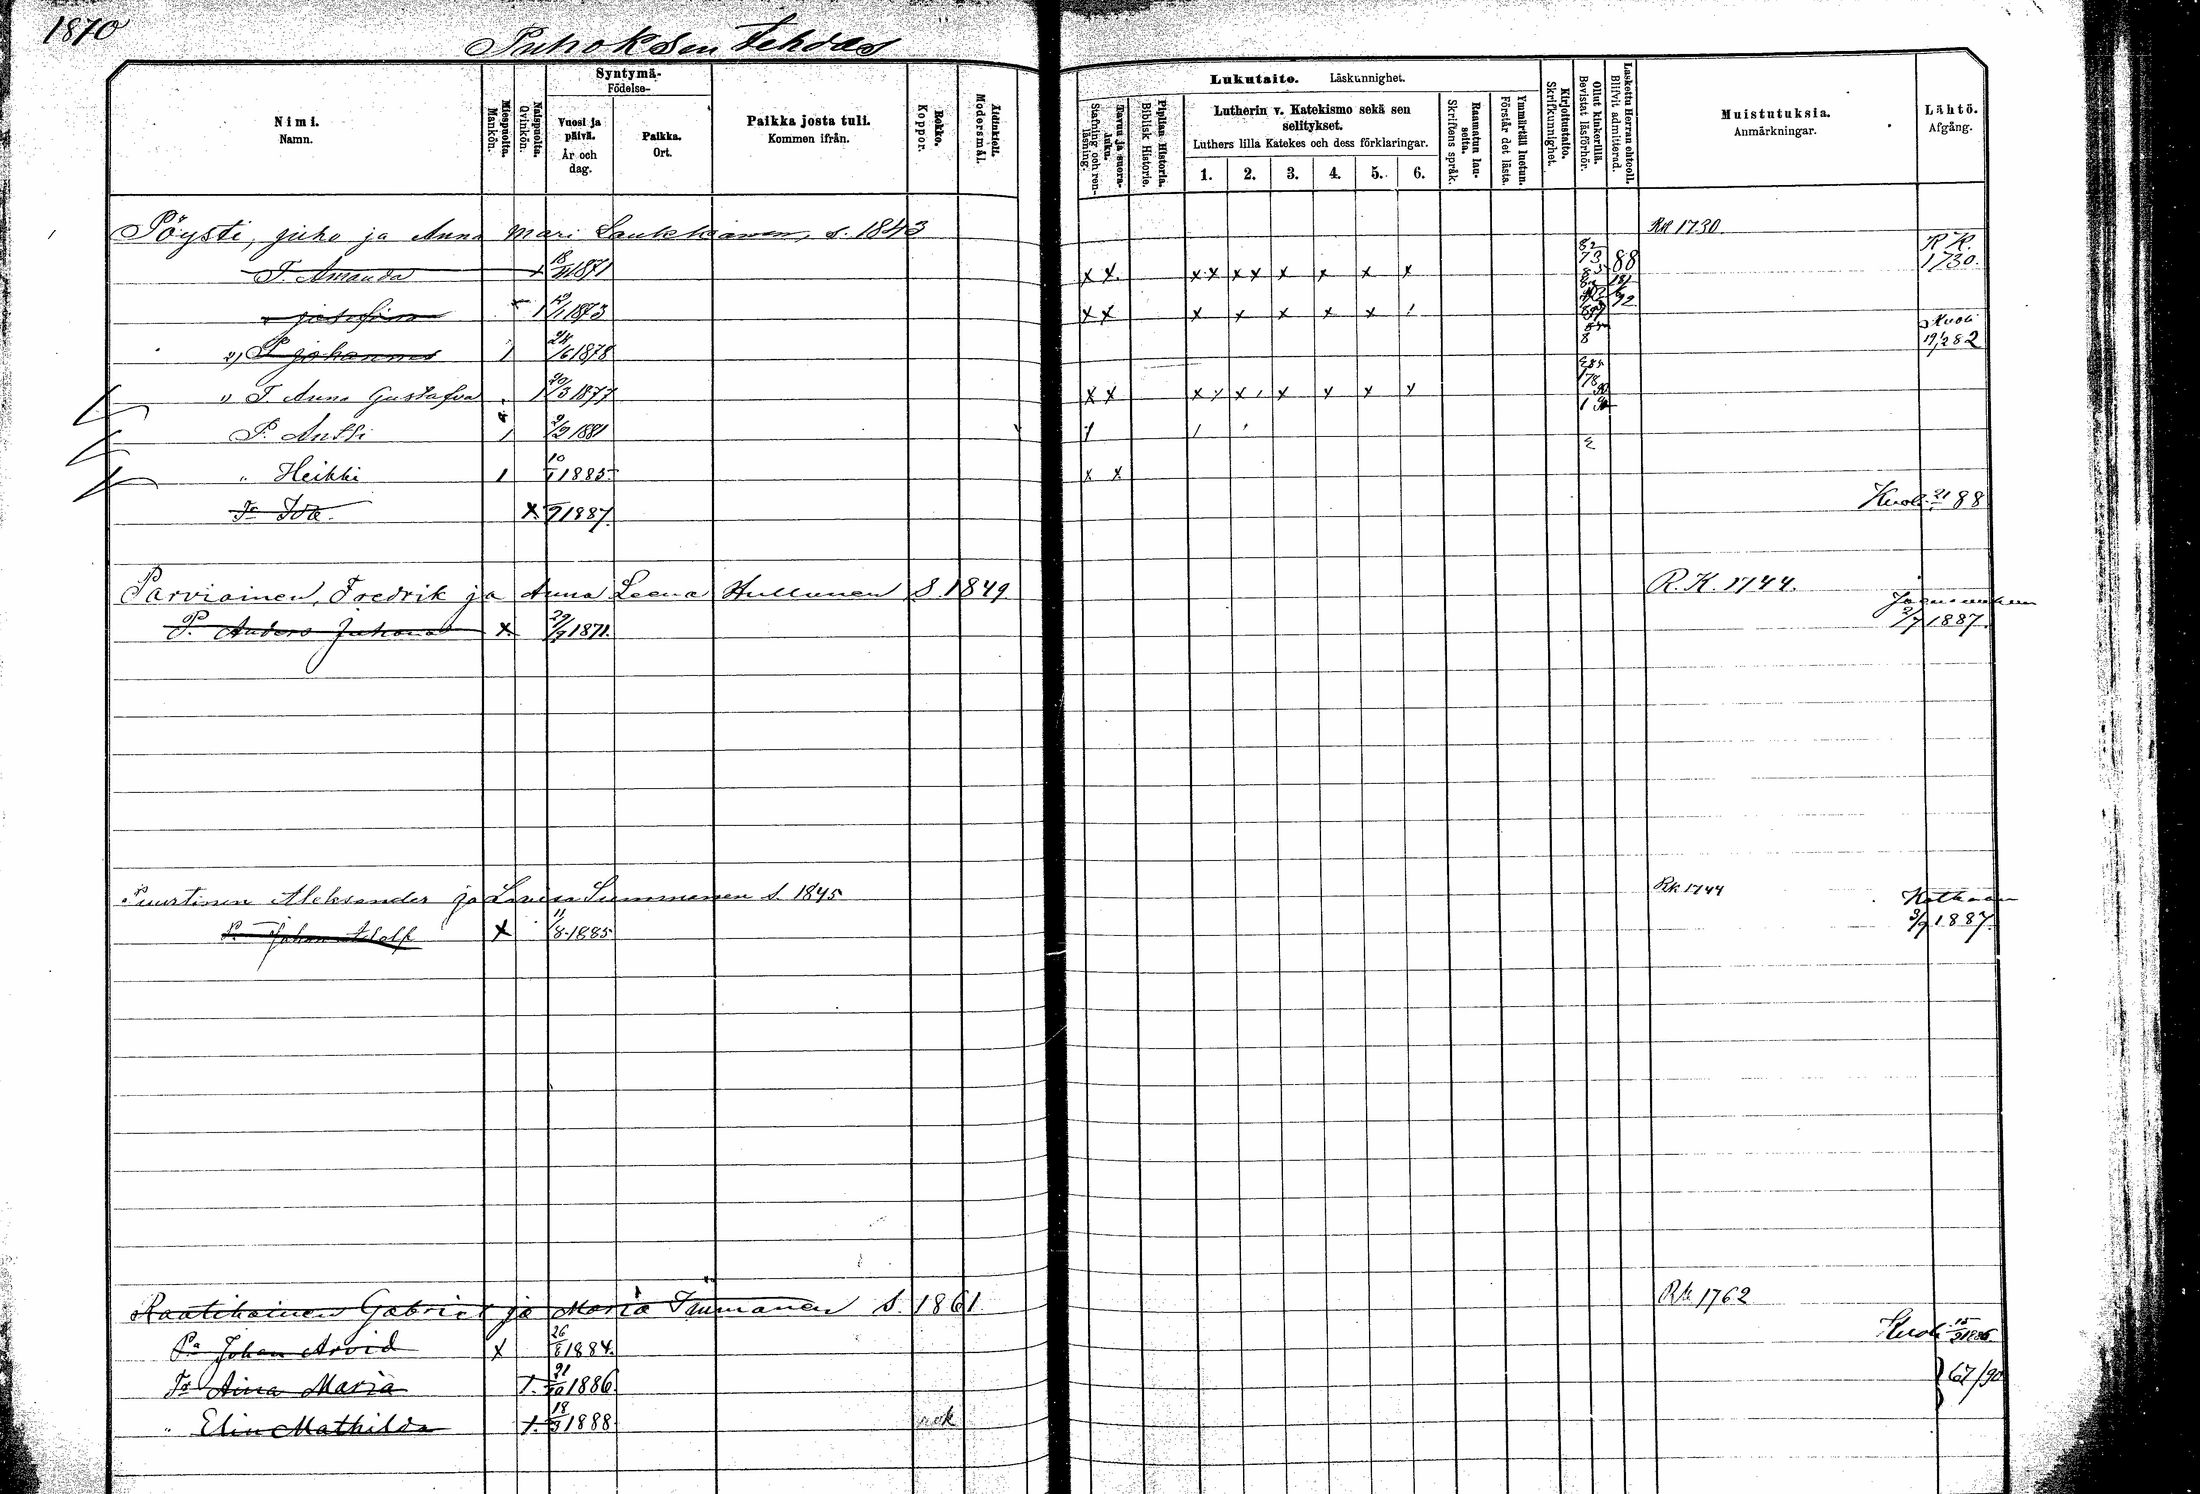 1870
Puhoksen Tehdas
Nimi. Namn.
Miespuolia. Mankön.
Naispuolia. Qvinkön.
Syntymä- Födelse-
Vuosi ja päivä. År och dag.
Paikka. Ort.
Paikka josta tuli. Kommen ifrån.
Rokko. Koppor.
Äidinkieli. Modersmål.
Lukutaito. Läskunnighet.
Tavuu ja suora- luku. Stafning och ren- läsning.
Piplian Historia. Biblisk Historie.
Lutherin v. Katekismo sekä sen selitykset.
Luthers lilla Katekes och dess förklaringar.
1. 2. 3. 4. 5. 6.
Raamatun lau- seita. Skriftens språk.
Ymmärtää luetun. Förstår det lästa.
Kirjoitustaito. Skrifkunnighet.
Ollut kinkerillä. Bevistat läsförhör.
Laskettu Herran ehtooll. Blifvit admitterad.
Muistutuksia. Anmärkningar.
Lähtö. Afgång.
Pöysti, Juho ja Anna Mari Laukkanen, s. 1843 RK 1730
T. Amanda x 18 1871 x x x x x x x x x x 88 R K. 1730.
" Josefina 1 1873 x x x x x x x 92
2) P. Johannes 1 24/6 1878 Kuoli 82
" T. Anna Gustafva 1 20/3 1877 x x
P. Antti 1 2/2 1881
" Heikki 1 10/1 1885 x x
Tr Ida x 1887 Kuoli 21 88
Parviainen, Fredrik ja Anna Leena Hullunen S. 1849 R. K. 1744.
P. Anders Juhana x 29/9 1871. 2/7 1887.
Puurtinen Aleksander ja Lovisa Summanen s. 1845 RK 1744
P. Johan Adolf x 11/8 1885 3/9 1887.
Raatikainen Gabriel ja Maria Immonen S. 1861 RK 1762
Pa Johan Arvid x 26 1884. Kuoli 15 1886
Tr Aina Maria 1. 21/10 1886 67/90
" Elin Mathilda 1. 18 1888 rok